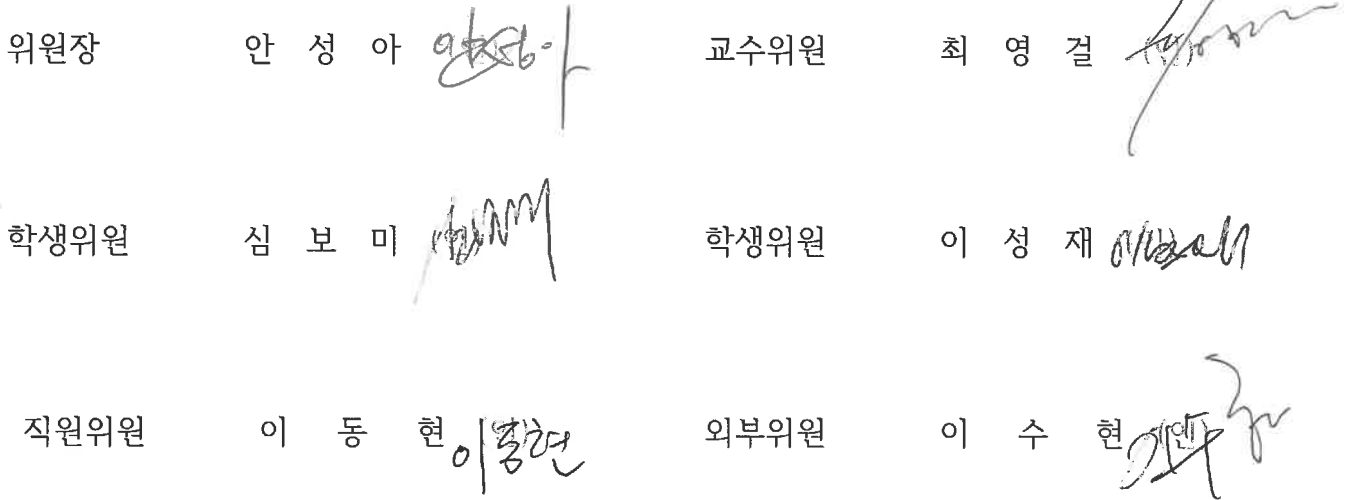 위원장 안 성 아 안성아 교수위원 최 영 걸 (인)
학생위원 심 보 미 학생위원 이 성 재
직원위원 이 동 현 이동현 외부위원 이 수 현 (인)